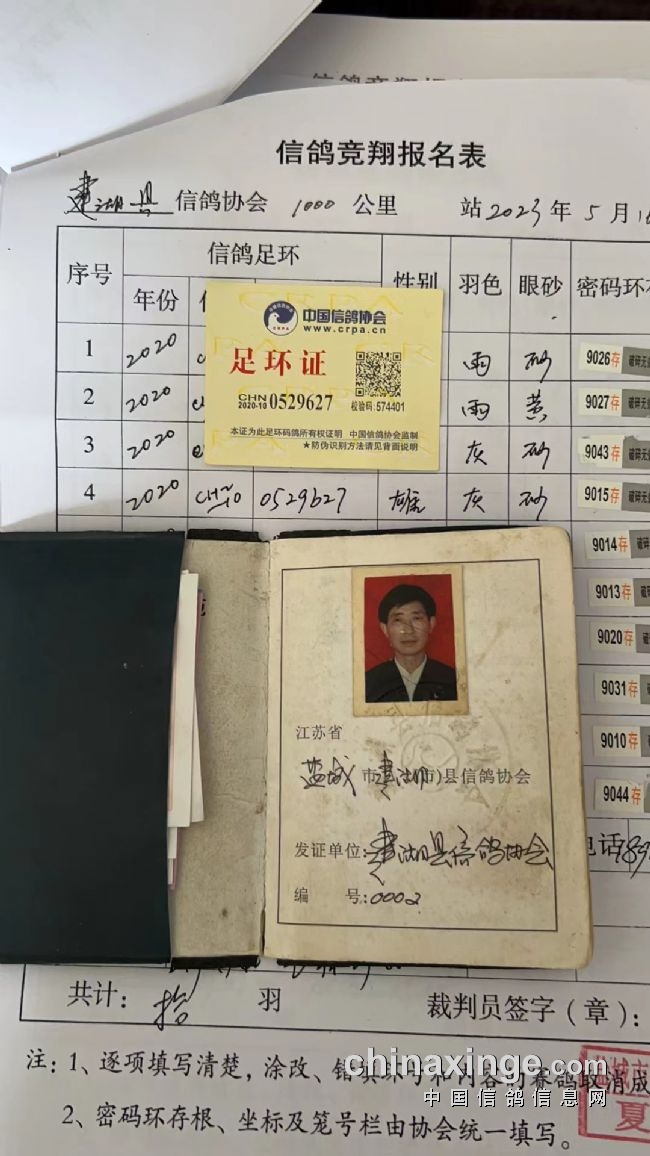 信鸽竞翔报名表
建湖县 信鸽协会 1000 公里 站 2023 年 5 月
序号 信鸽足环 性别 羽色 眼砂 密码环存
年份
1 2020 雨 砂 9026存
2 2020 雨 黄 9027存
3 2020 灰 砂 9043存
4 2020 CHN 10 0529627 雄 灰 砂 9015存
9014存
9013存
9020存
9031存
9010存
9044存
中国信鸽协会
www.crpa.cn
CRPA
足环证
CHN
2020-10 0529627
校验码:574401
本证为此足环码鸽所有权证明 中国信鸽协会监制
★防伪识别方法请见背面说明
江苏省
盐城 市 建湖(市)县信鸽协会
发证单位:建湖县信鸽协会
编 号:0002
电话
共计: 拾 羽 裁判员签字(章):
注:1、逐项填写清楚,涂改、错填环号和内容的赛鸽取消成
2、密码环存根、坐标及笼号栏由协会统一填写。
夏
chinaxinge.com
中国信鸽信息网